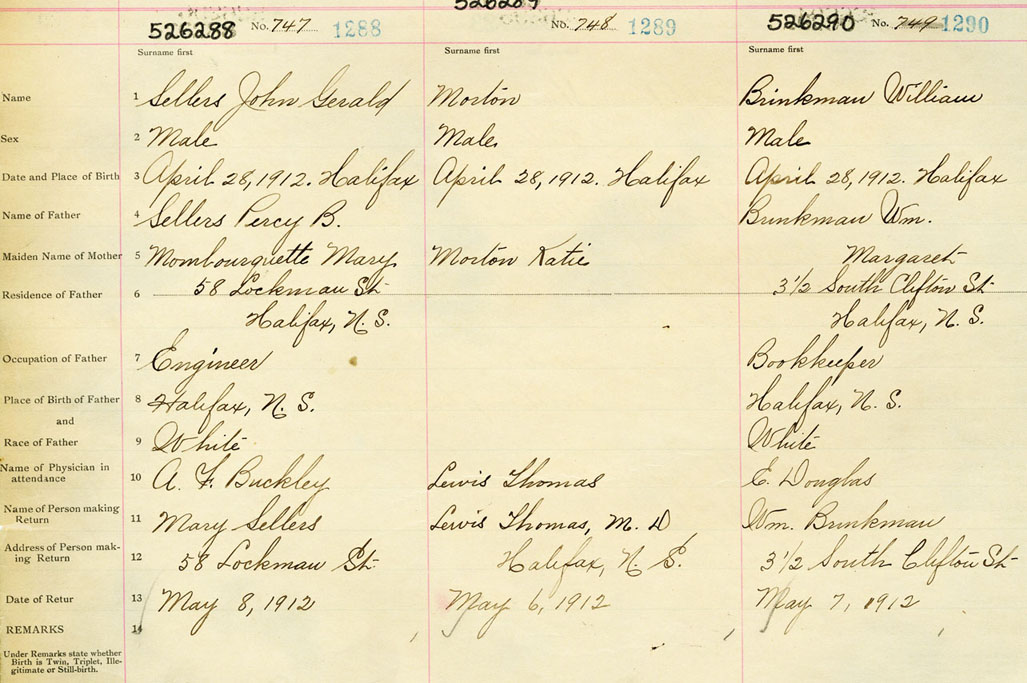 526289
526288 No. 747 1288 No. 748 1289 526290 No. 749 1290
Surname first Surname first Surname first
Name 1 Sellers John Gerald Morton Brinkman William
Sex 2 Male Male Male
Date and Place of Birth 3 April 28, 1912. Halifax April 28, 1912. Halifax April 28, 1912. Halifax
Name of Father 4 Sellers Percy B. Brinkman Wm.
Maiden Name of Mother 5 Mombourquette Mary Morton Katie Margaret
Residence of Father 6 58 Lockman St 3½ South Clifton St
Halifax, N. S. Halifax, N. S.
Occupation of Father 7 Engineer Bookkeeper
Place of Birth of Father 8 Halifax, N. S. Halifax, N. S.
and
Race of Father 9 White White
Name of Physician in
attendance 10 A. F. Buckley Lewis Thomas E. Douglas
Name of Person making
Return 11 Mary Sellers Lewis Thomas, M. D Wm. Brinkman
Address of Person mak-
ing Return 12 58 Lockman St Halifax, N. S. 3½ South Clifton St
Date of Retur 13 May 8, 1912 May 6, 1912 May 7, 1912
REMARKS 14
Under Remarks state whether
Birth is Twin, Triplet, Ille-
gitimate or Still-birth.